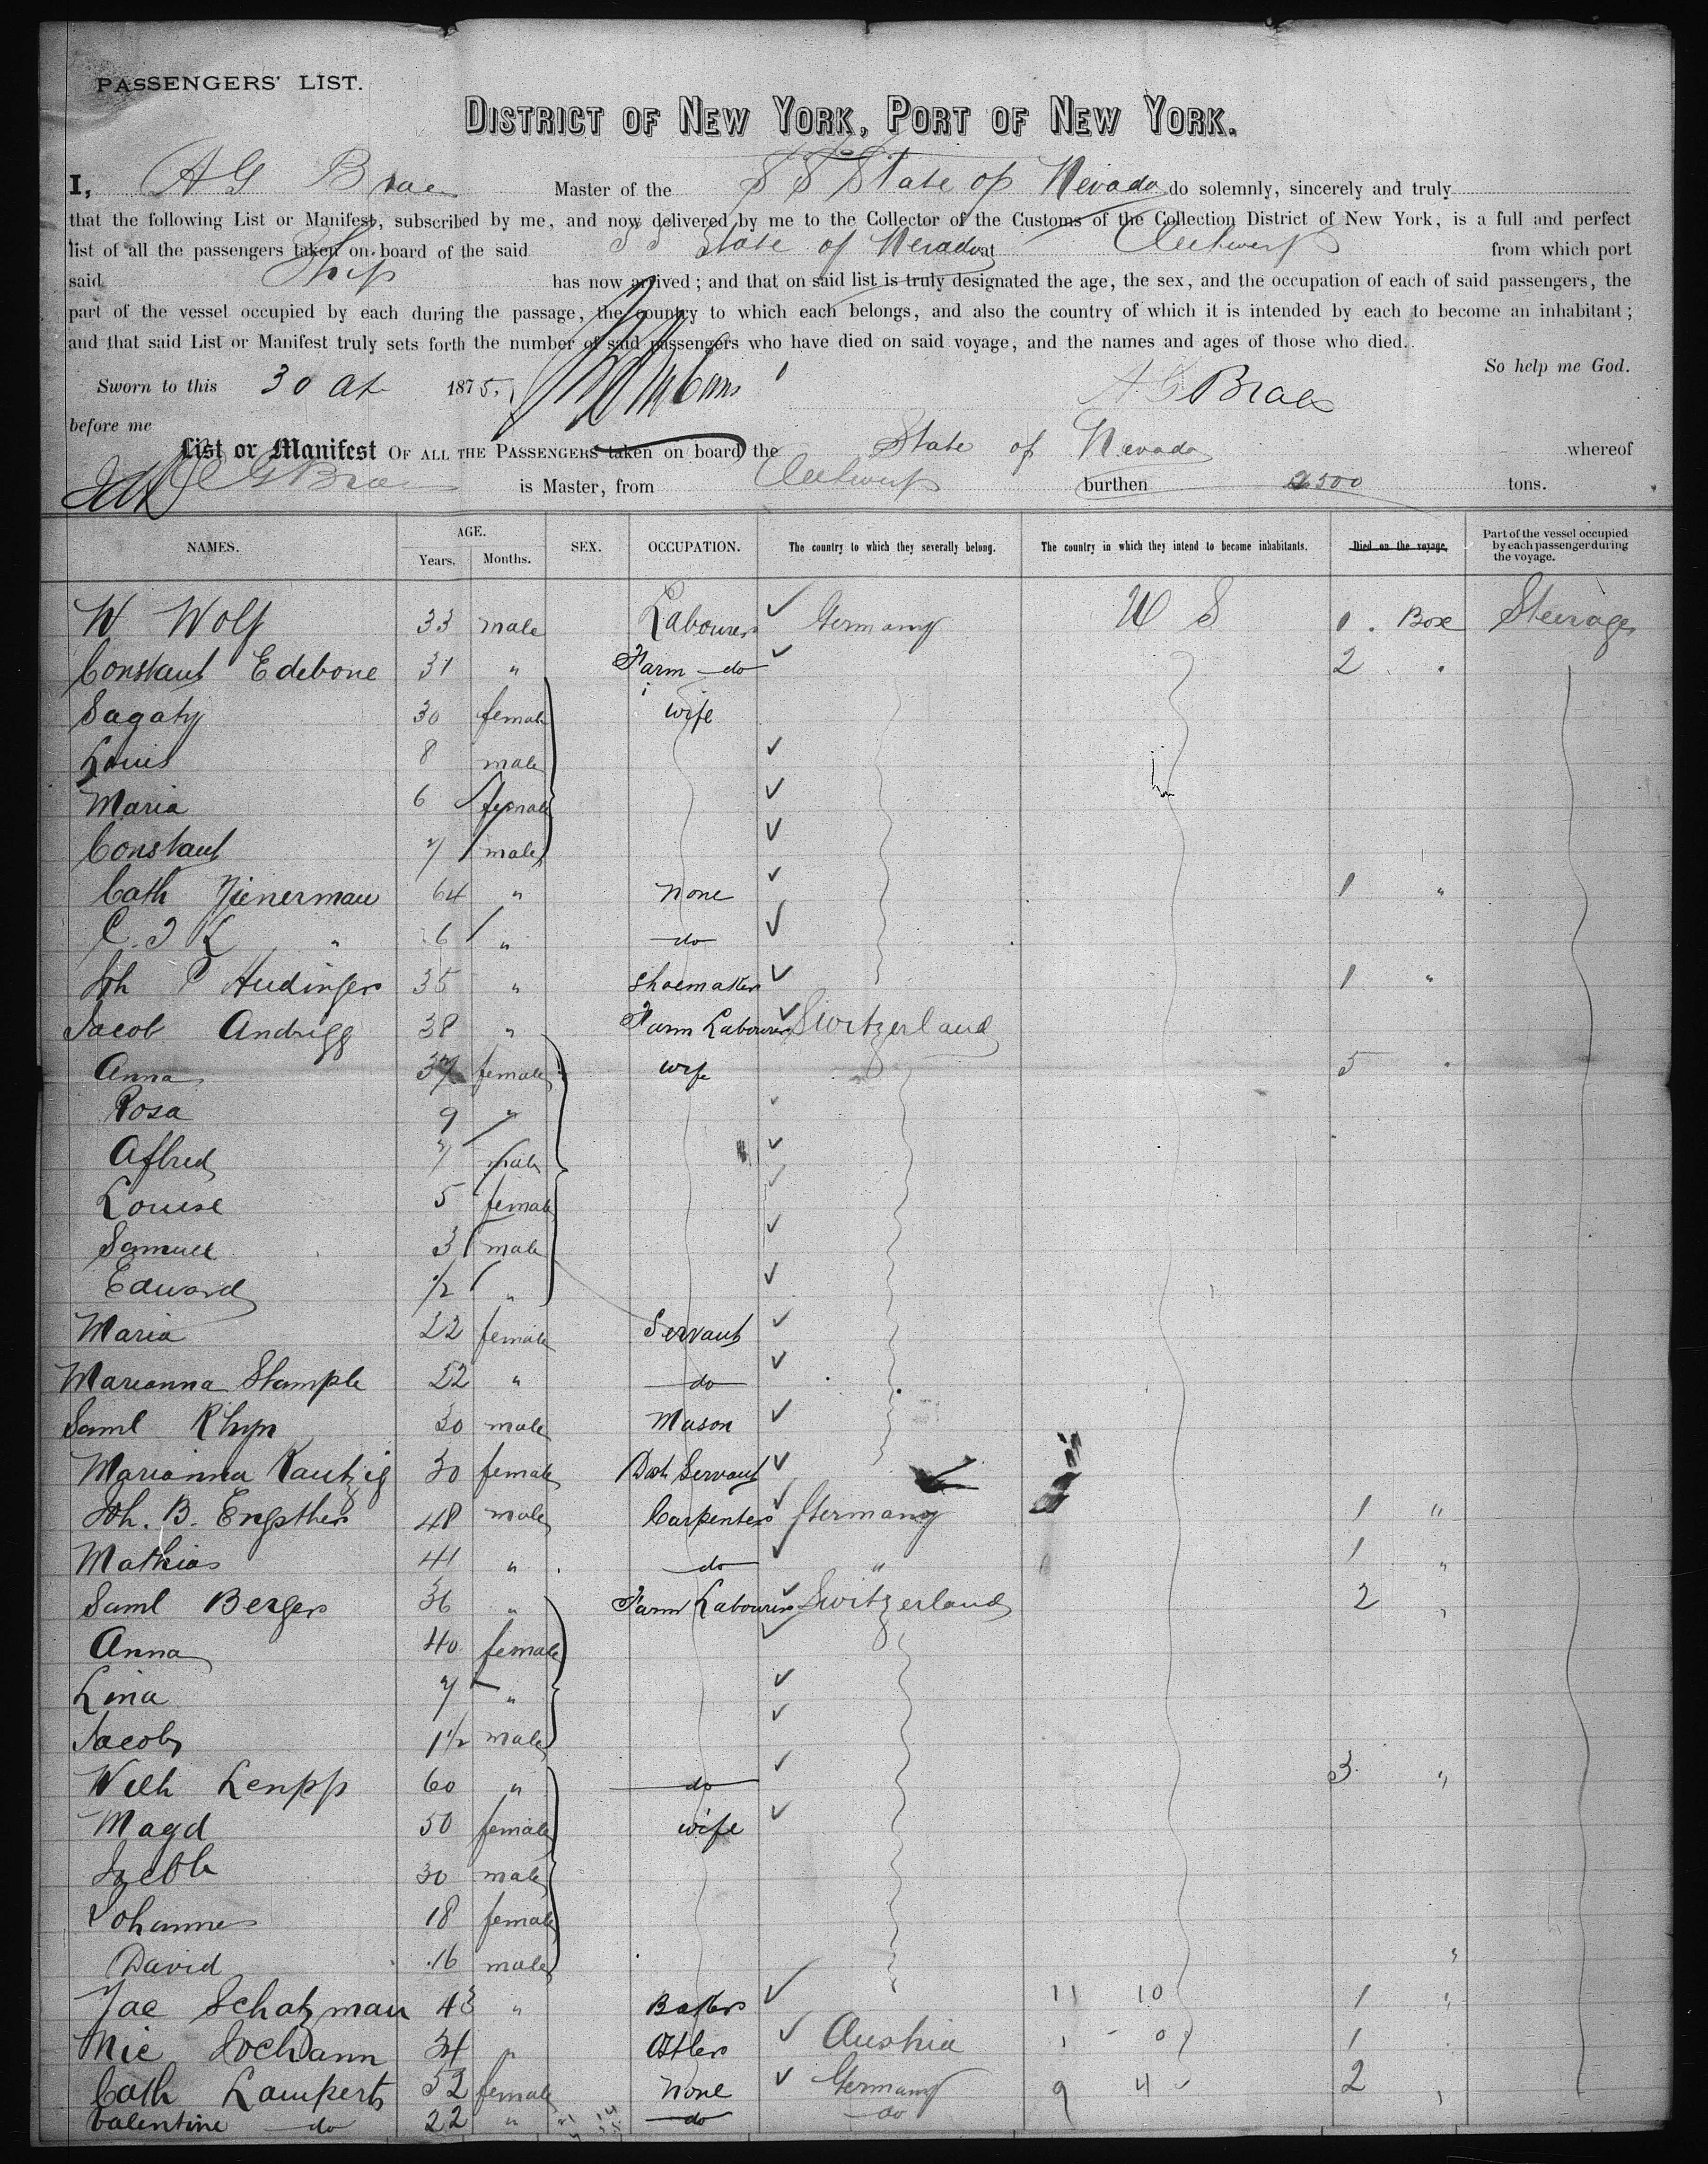 PASSENGERS' LIST.
DISTRICT OF NEW YORK, PORT OF NEW YORK.
I, A G Braes Master of the S S State of Nevada do solemnly, sincerely and truly
that the following List or Manifest, subscribed by me, and now delivered by me to the Collector of the Customs of the Collection District of New York, is a full and perfect
list of all the passengers taken on board of the said S S State of Nevada at Antwerp from which port
said Ship has now arrived; and that on said list is truly designated the age, the sex, and the occupation of each of said passengers, the
part of the vessel occupied by each during the passage, the country to which each belongs, and also the country of which it is intended by each to become an inhabitant;
and that said List or Manifest truly sets forth the number of said passengers who have died on said voyage, and the names and ages of those who died.
So help me God.
Sworn to this 30 1875. A G Braes
before me
List or Manifest OF ALL THE PASSENGERS taken on board the State of Nevada whereof
A G Braes is Master, from Antwerp burthen 2500 tons.
NAMES. AGE. Years. Months. SEX. OCCUPATION. The country to which they severally belong. The country in which they intend to become inhabitants. Died on the voyage. Part of the vessel occupied by each passenger during the voyage.
W Wolf 33 male Labourer Germany U S 1 . Box Steerage
Constant Edebone 31 " Farm do 2 "
Sagaty 30 female wife
Louis 8 male
Maria 6 female
Constant 7 male
Cath 64 " None 1 "
6 " do
Joh P 35 " Shoemaker 1 "
Jacob Andrigg 38 " Farm Labourer Switzerland
Anna 37 female wife 5 "
Rosa 9 "
Alfred 7 male
Louise 5 female
Samuel 3 male
Edward 1/2 "
Maria 22 female Servant
Marianna Stample 52 " do
Saml Rhyn 30 male Mason
Marianna Kautzig 30 female Servant
Joh. B. Engsther 48 male Carpenter Germany 1 "
Mathias 41 " do " 1 "
Saml Berger 36 " Farm Labourer Switzerland 2 "
Anna 40 female
Lina 7 "
Jacob 1 1/2 male
Wilh Lenpp 60 " do 3 "
Magd 50 female wife
Jacob 30 male
Johanne 18 female
David 16 male "
Jac Schatzman 43 " Baker 11 10 1 "
Mic 34 " Ostler Austria 1 0 1
Cath Lampert 52 female None Germany 9 4 2 "
Valentine do 22 " do do